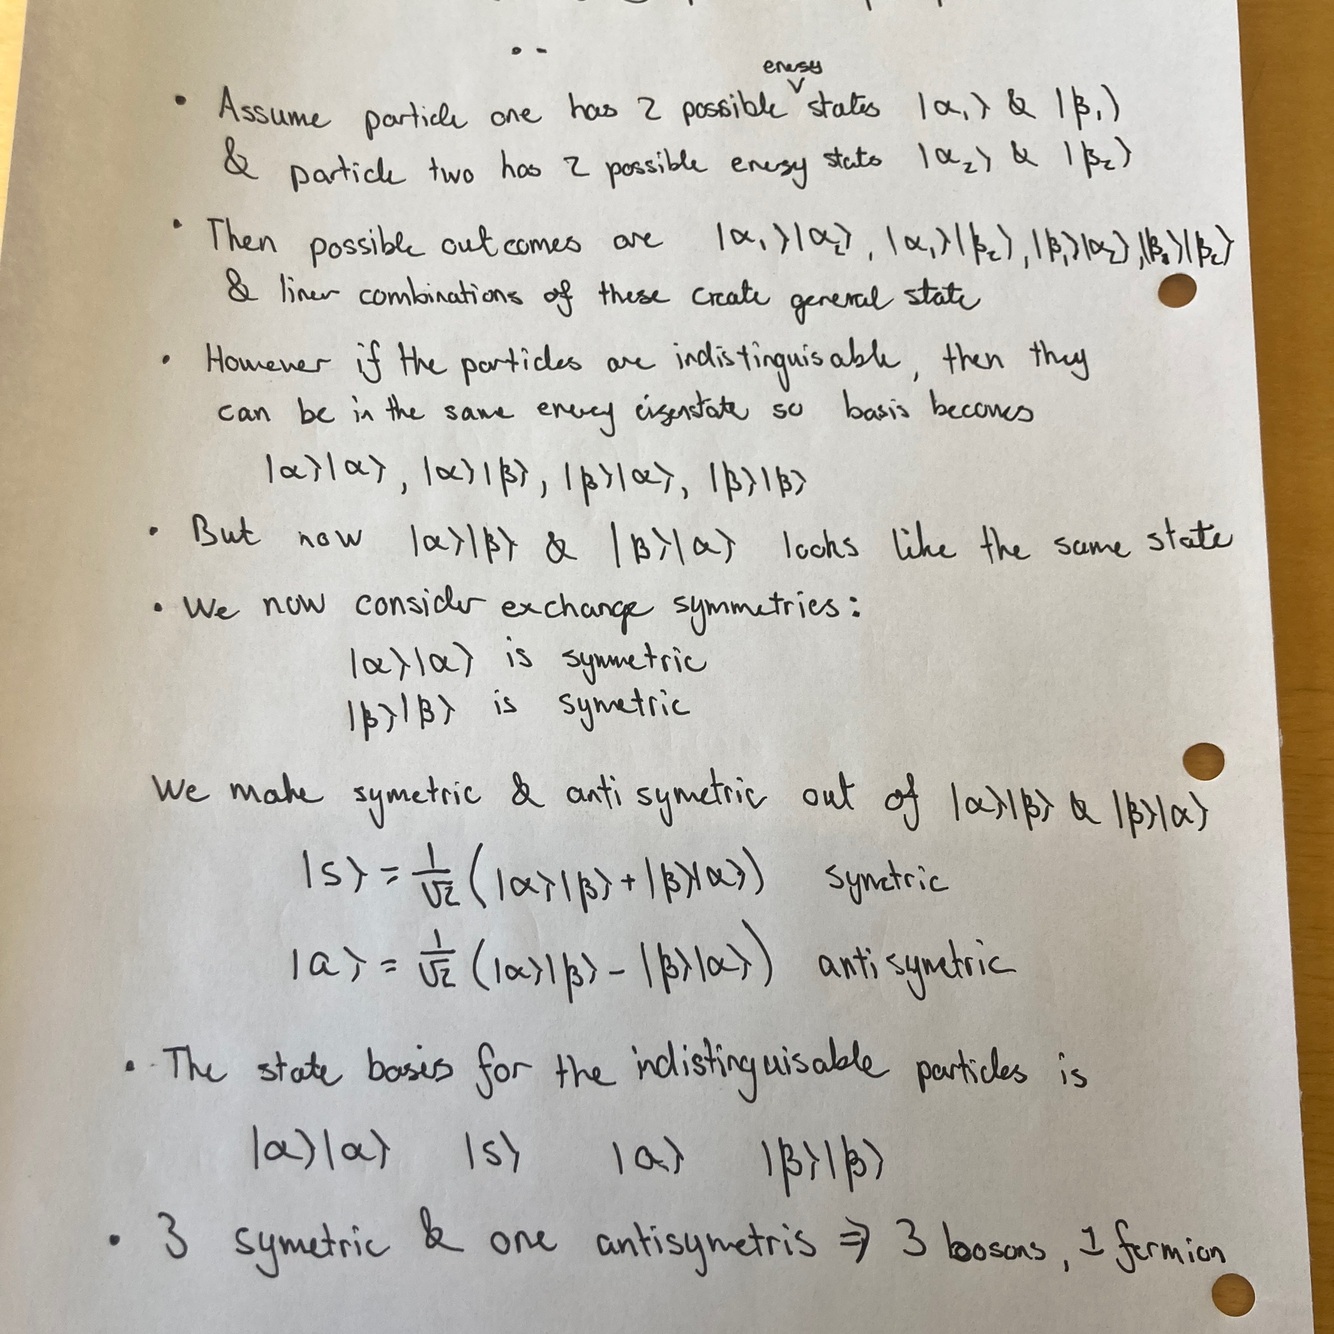 • Assume particle one has 2 possible energy states |α₁⟩ & |β₁⟩
& particle two has 2 possible energy state |α₂⟩ & |β₂⟩
• Then possible outcomes are |α₁⟩|α₂⟩, |α₁⟩|β₂⟩, |β₁⟩|α₂⟩, |β₁⟩|β₂⟩
& liner combinations of these create general state
• However if the particles are indistinguisable, then they
can be in the same energy eigenstate so basis becomes
|α⟩|α⟩, |α⟩|β⟩, |β⟩|α⟩, |β⟩|β⟩
• But now |α⟩|β⟩ & |β⟩|α⟩ looks like the same state
• We now consider exchange symmetries:
|α⟩|α⟩ is symmetric
|β⟩|β⟩ is symetric
We make symetric & anti symetric out of |α⟩|β⟩ & |β⟩|α⟩
|s⟩ = 1/√2 (|α⟩|β⟩ + |β⟩|α⟩) symetric
|a⟩ = 1/√2 (|α⟩|β⟩ - |β⟩|α⟩) anti symetric
• The state basis for the indistinguisable particles is
|α⟩|α⟩ |s⟩ |a⟩ |β⟩|β⟩
• 3 symetric & one antisymetris ⇒ 3 bosons, 1 fermion